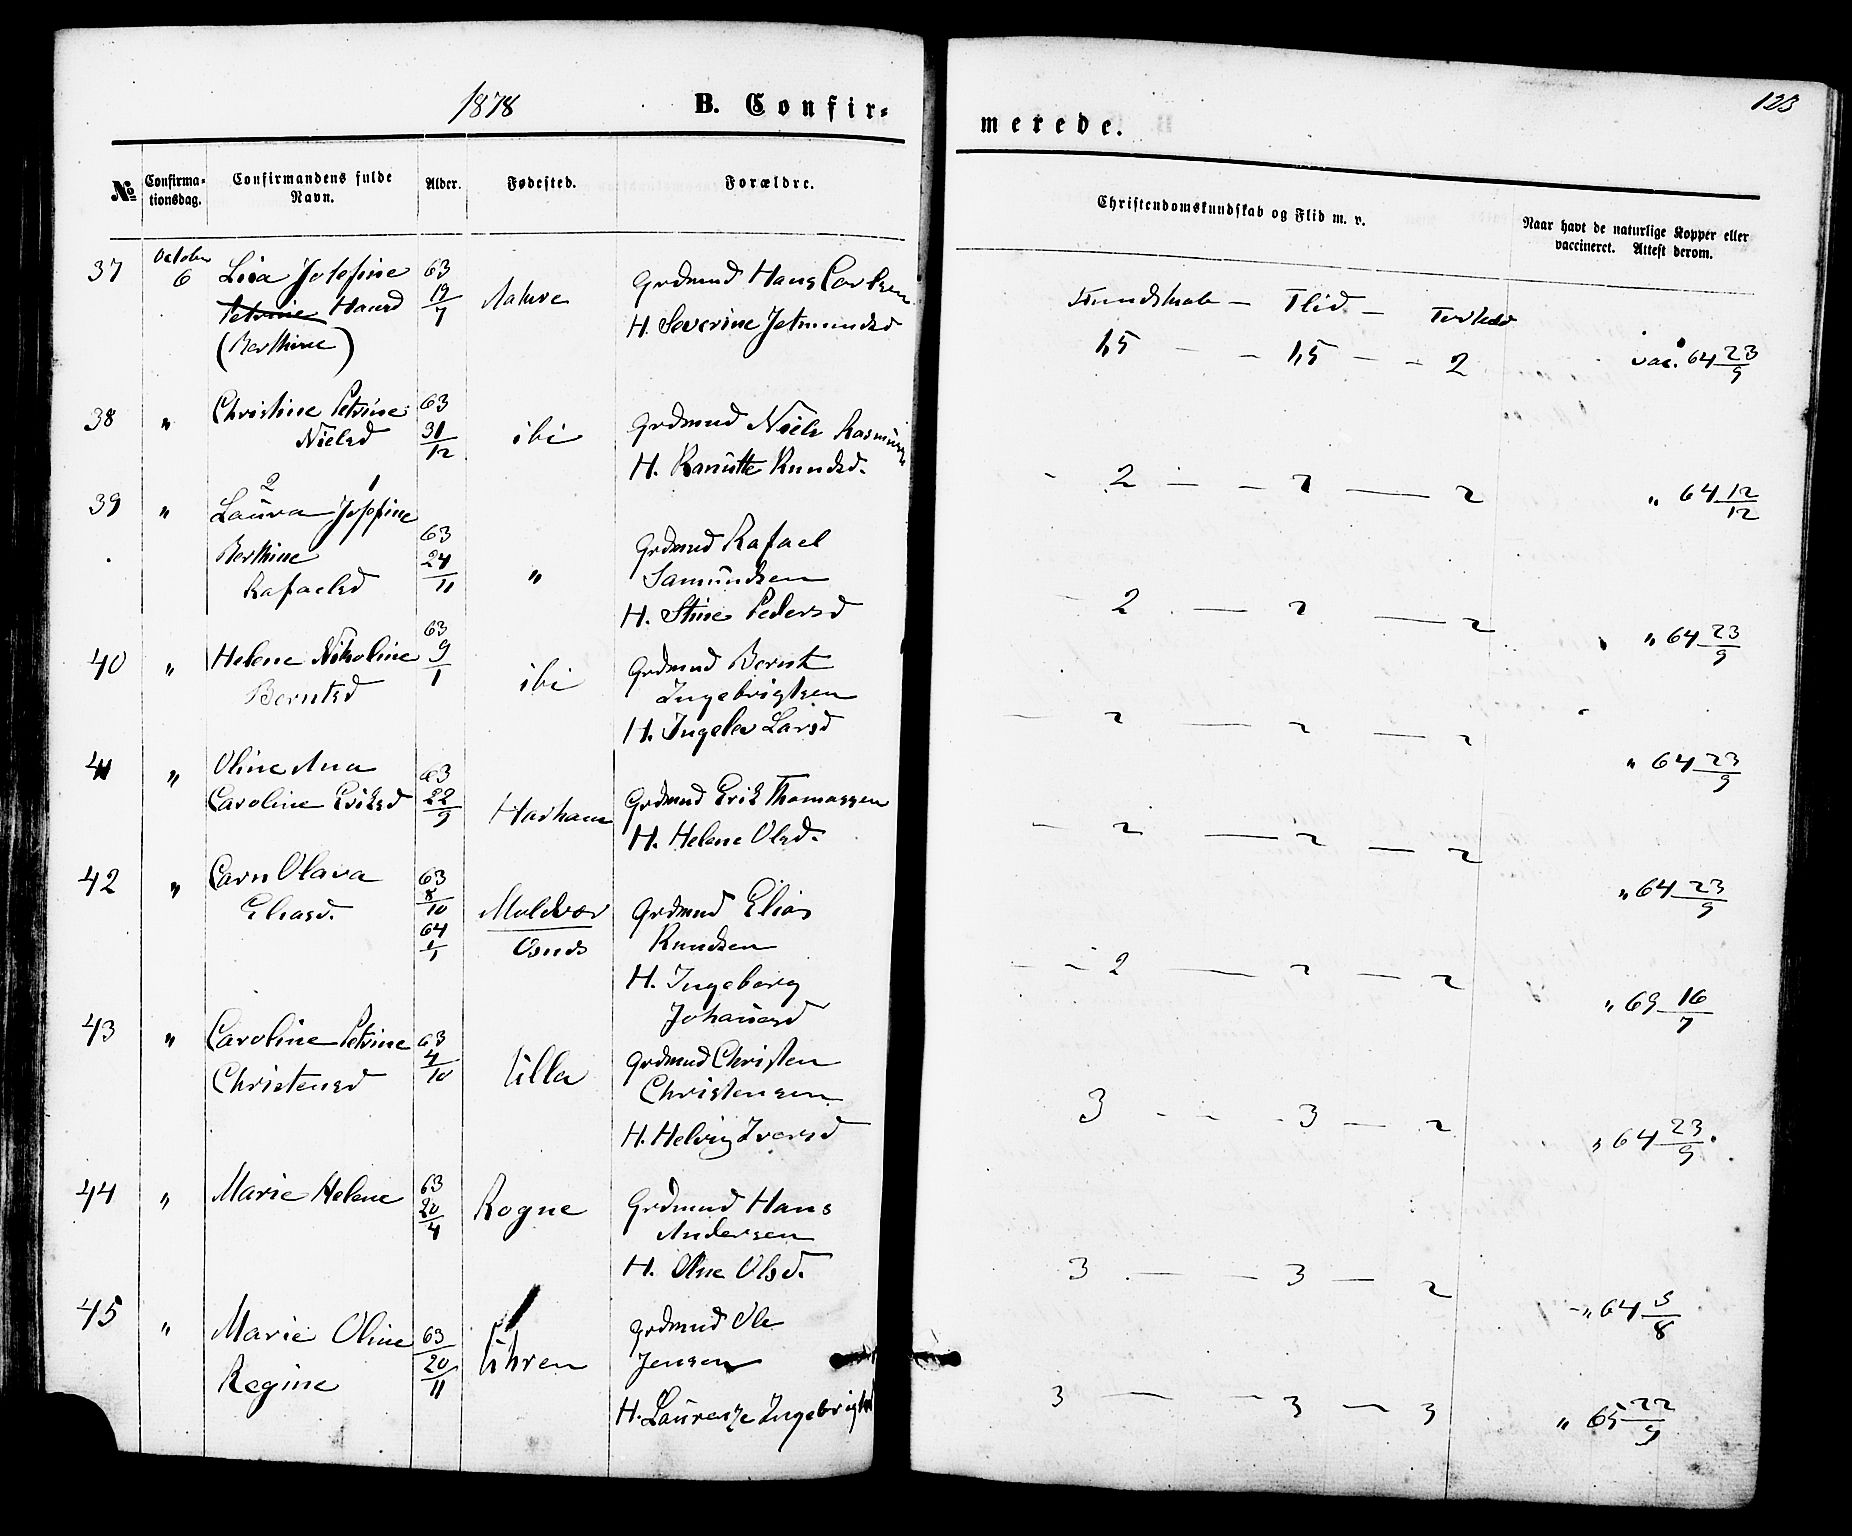 1878
B. Confir-
merede.
123
№
Confirma-
tionsdag.
Confirmandens fulde
Navn.
Alder.
Fødested.
Forældre.
Christendomskundskab og Flid m. v.
Naar havt de naturlige Kopper eller
vaccineret. Attest derom.
37 October 6 Lisa Josefine 63 19/7 Grdmnd Hans Carlsen
Petrine Hansd H. Severine Jetmundsd
(Berthine)
Kundskab — Flid —
1,5 — — 1,5 — — 2 vac. 64 23/9
38 " Christine Petrine 63 31/12 ibi Grdmnd Niels Rasmuss
Nielsd H. Ranutte Knudsd.
- 2 — — 2 — 2 " 64 12/12
39 " 2 1
Laura Josefine
Berthine 63 24/11 " Grdmnd Rafael
Rafaelsd Samundsen
H. Stine Pedersd
- 2 — 2 — 2 " 64 23/9
40 " Helene Nikoline 63 9/1 ibi Grdmnd Bernt
Berntsd Ingebrigtsen
H. Ingelev Larsd
— 2 — 2 — 2 " 64 23/9
41 " Oline Ana 63 22/9 Harham Grdmnd Erik Thomassen
Caroline Eriksd H. Helene Olsd.
— 2 — 2 — 2 " 64 23/9
42 " Carn Olava 63 8/10 Moldvær Grdmnd Elias
Eliasd. 64 1/1 Osnes Knudsen
H. Ingeborg
Johansd
- - 2 — 2 — 2 " 69 16/7
43 " Caroline Petrine 63 4/10 Ulla Grdmnd Christen
Christensd Christensen
H. Helvig Iversd
3 - - 3 — 2 " 64 23/9
44 " Marie Helene 63 20/4 Rogne Grdmnd Hans
Andersen
H. Oline Olsd.
3 — — 3 — 2 " 64 3/8
45 " Marie Oline 63 20/11 Uhren Grdmnd Ole
Regine Jensen
H. Laurentze Ingebrigtsd
3 — — 3 — 3 " 65 22/9